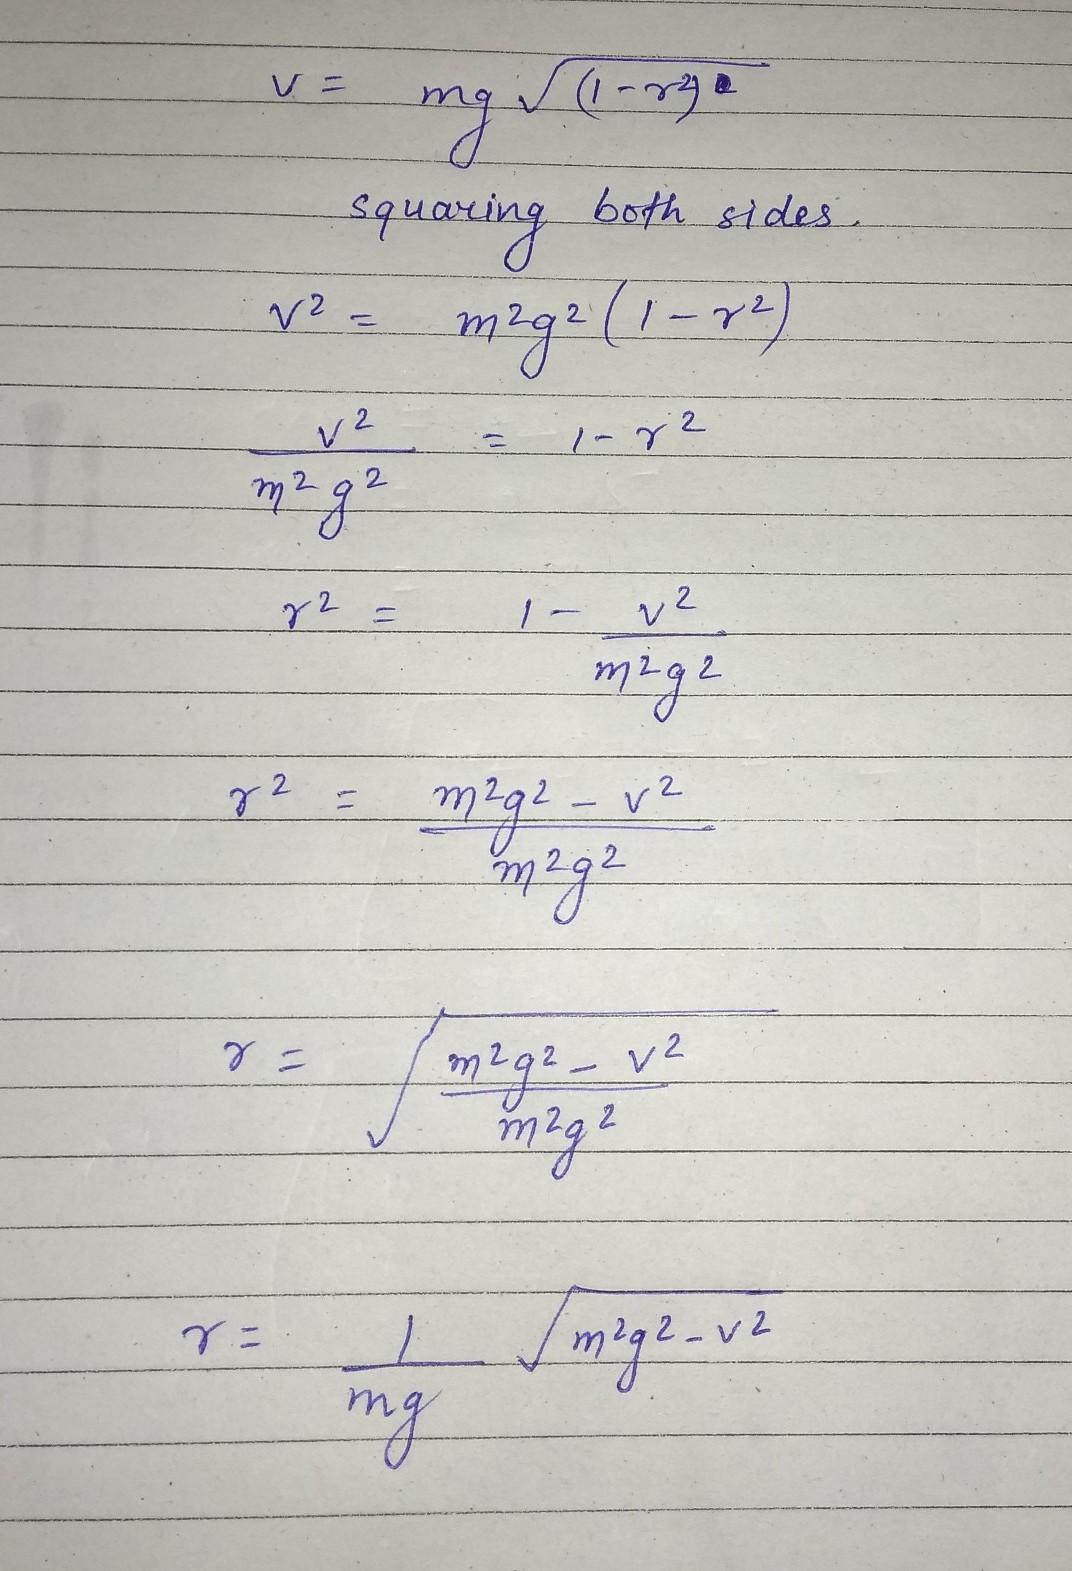 v = mg √(1-r²)
squaring both sides.
v² = m²g² (1-r²)
v²/m²g² = 1-r²
r² = 1 - v²/m²g²
r² = m²g² - v²/m²g²
r = √m²g² - v²/m²g²
r = 1/mg √m²g² - v²